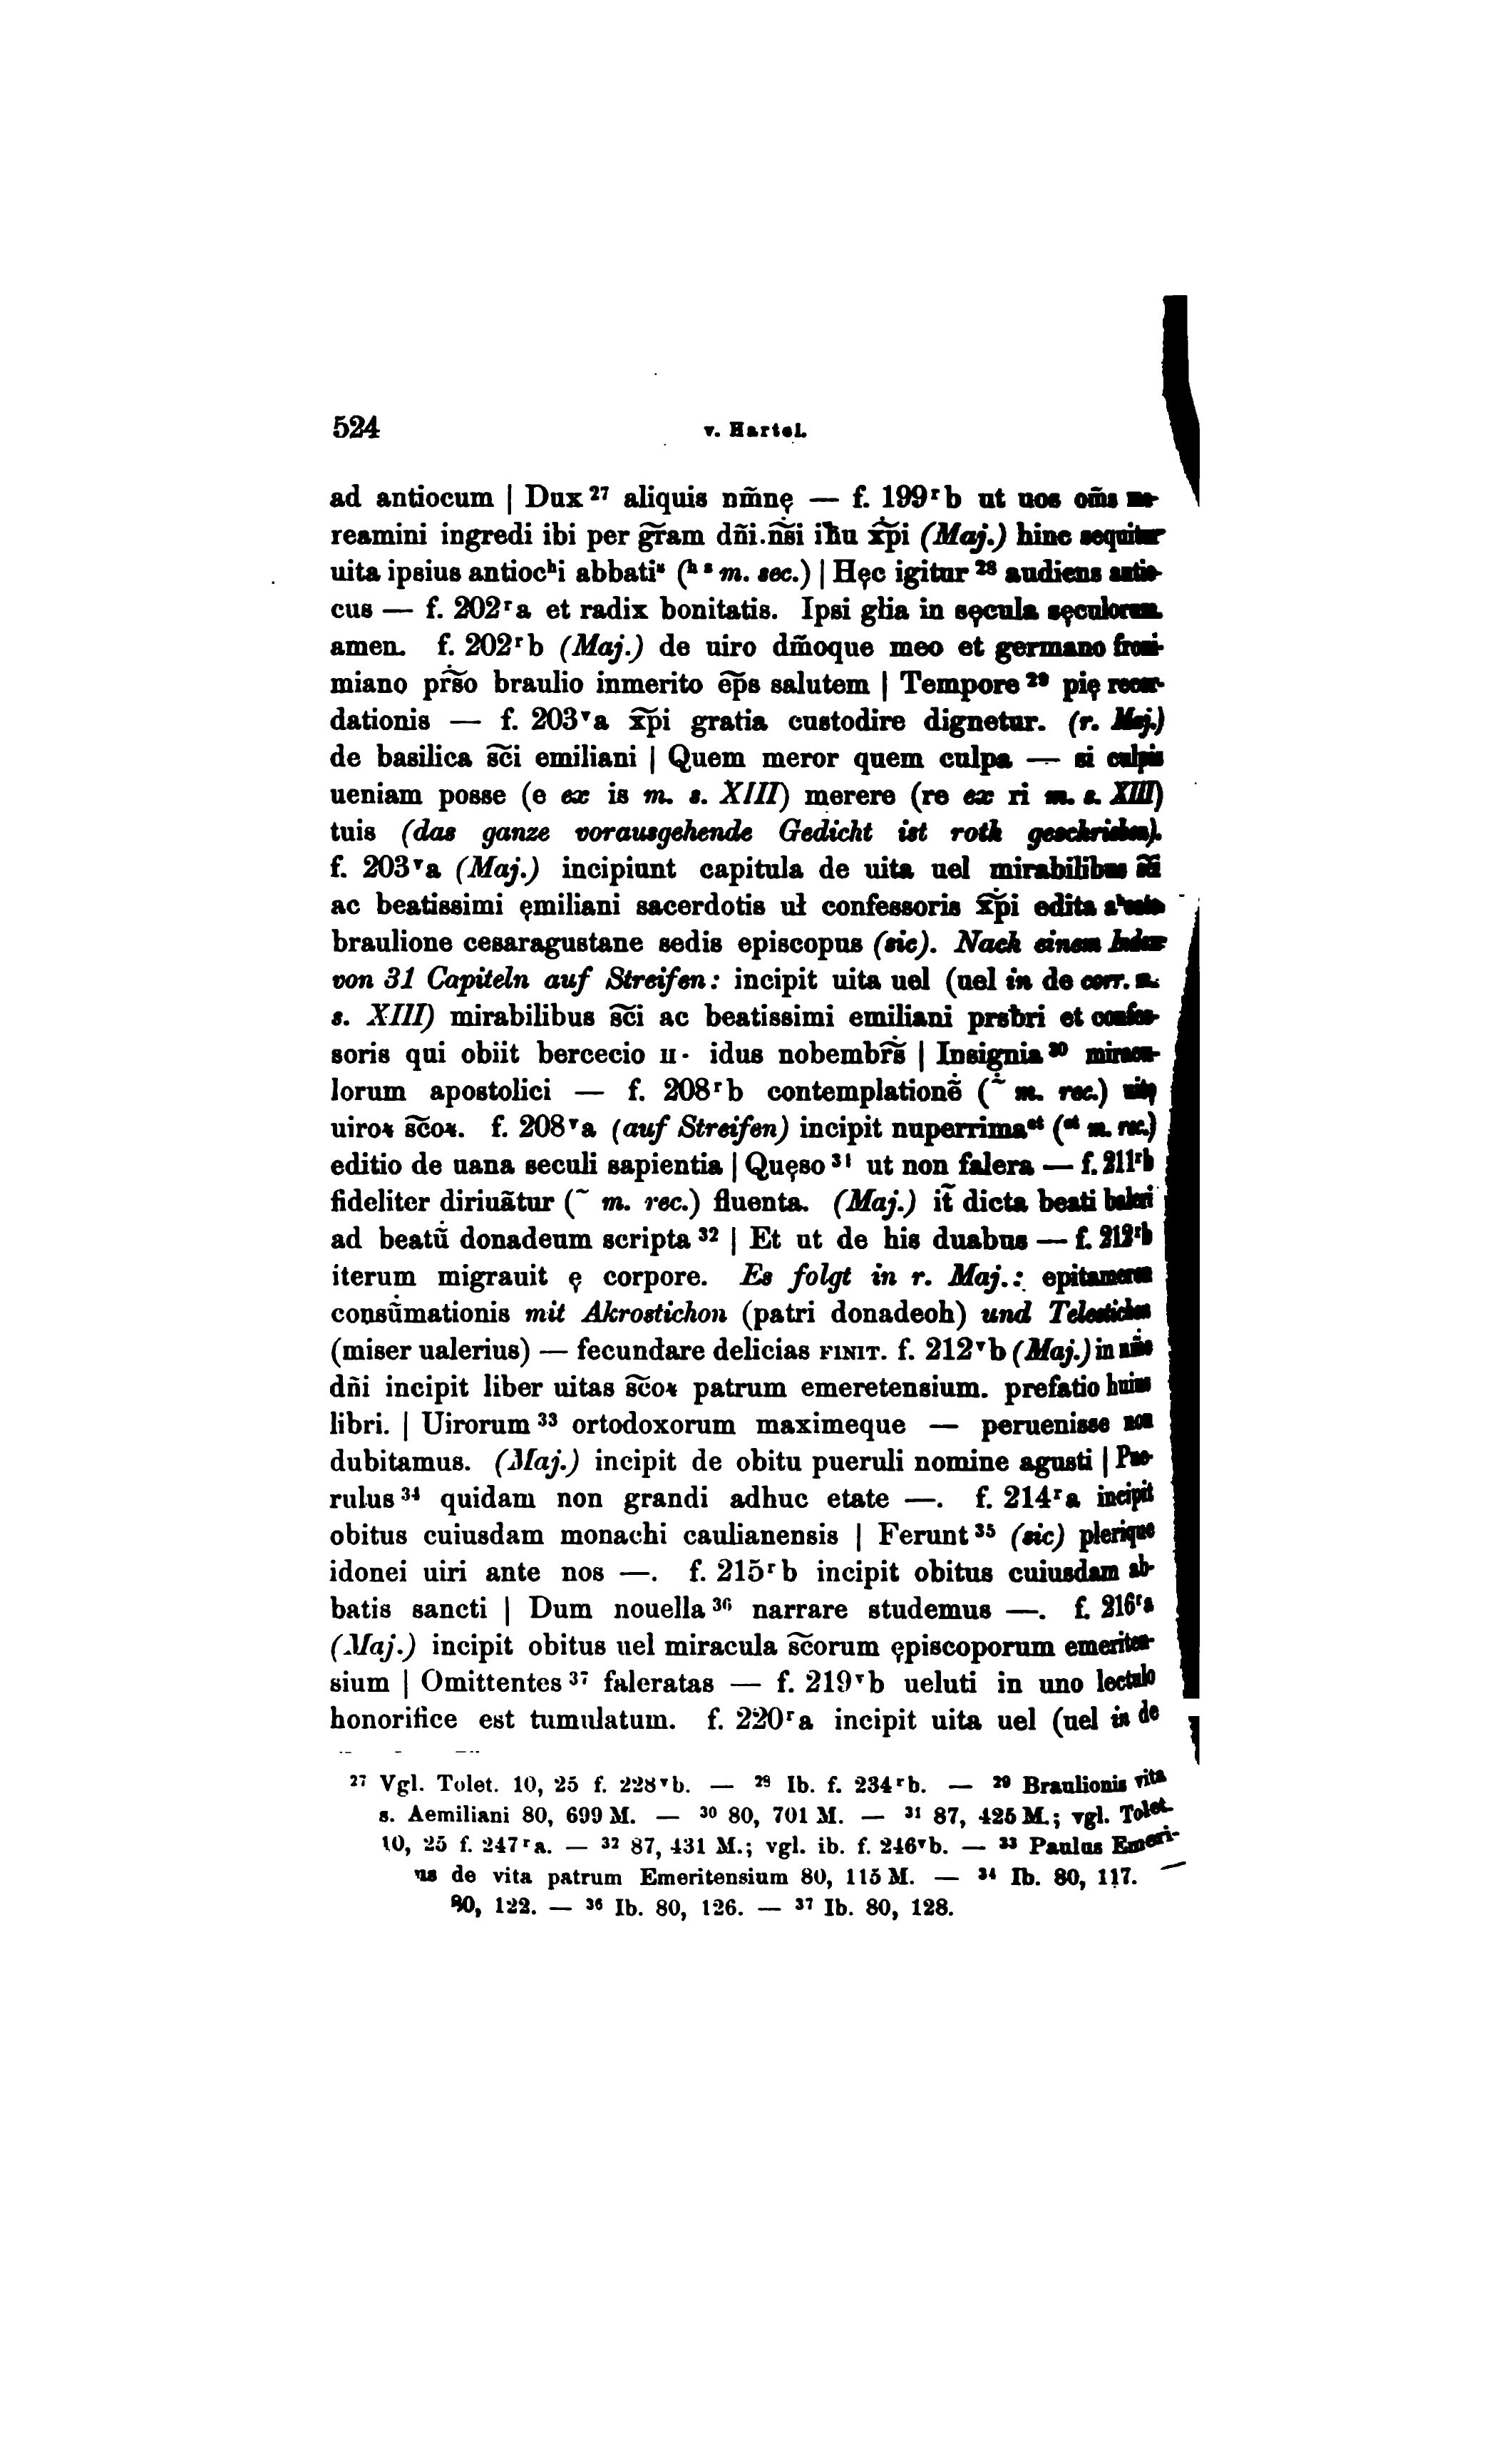 524
v. Hartel.
ad antiocum | Dux ²⁷ aliquis nm̃nę — f. 199ʳb ut uos om̃s me-
reamini ingredi ibi per gr̃am dñi.ñsi ih̃u x̃pi (Maj.) hinc sequitur
uita ipsius antiocʰi abbatiˢ (ʰ ˢ m. sec.) | Hęc igitur ²⁸ audiens antio-
cus — f. 202ʳa et radix bonitatis. Ipsi gl̃ia in sęcula sęculorum.
amen. f. 202ʳb (Maj.) de uiro dm̃oque meo et germano froni-
miano pr̃so braulio inmerito ẽps salutem | Tempore ²⁹ pię recor-
dationis — f. 203ᵛa x̃pi gratia custodire dignetur. (r. Maj.)
de basilica s̃ci emiliani | Quem meror quem culpa — si culpis
ueniam posse (e ex is m. s. XIII) merere (re ex ri m. s. XIII)
tuis (das ganze vorausgehende Gedicht ist roth geschrieben).
f. 203ᵛa (Maj.) incipiunt capitula de uita uel mirabilibus s̃ci
ac beatissimi ęmiliani sacerdotis uł confessoris x̃pi edita a
braulione cesaragustane sedis episcopus (sic). Nach einem Index
von 31 Capiteln auf Streifen: incipit uita uel (uel in de corr. m.
s. XIII) mirabilibus s̃ci ac beatissimi emiliani prsb̃ri et confes-
soris qui obiit bercecio II· idus nobembr̃s | Insignia ³⁰ miracu-
lorum apostolici — f. 208ʳb contemplationẽ (˜ m. rec.) uitę
uiroꝝ s̃coꝝ. f. 208ᵛa (auf Streifen) incipit nuperrimaᵉᵗ (ᵉᵗ m. rec.)
editio de uana seculi sapientia | Quęso ³¹ ut non falera — f. 211ʳb
fideliter diriuãtur (˜ m. rec.) fluenta. (Maj.) it̃ dicta beati baleri
ad beatũ donadeum scripta ³² | Et ut de his duabus — f. 212ʳb
iterum migrauit ę corpore. Es folgt in r. Maj.: epitameron
consũmationis mit Akrostichon (patri donadeoh) und Telestichon
(miser ualerius) — fecundare delicias FINIT. f. 212ᵛb (Maj.) in nñe
dñi incipit liber uitas s̃coꝝ patrum emeretensium. prefatio huius
libri. | Uirorum ³³ ortodoxorum maximeque — peruenisse non
dubitamus. (Maj.) incipit de obitu pueruli nomine agusti | Pue-
rulus ³⁴ quidam non grandi adhuc etate —. f. 214ʳa incipit
obitus cuiusdam monachi caulianensis | Ferunt ³⁵ (sic) plerique
idonei uiri ante nos —. f. 215ʳb incipit obitus cuiusdam ab-
batis sancti | Dum nouella ³⁶ narrare studemus —. f. 216ʳa
(Maj.) incipit obitus uel miracula s̃corum ępiscoporum emeriten-
sium | Omittentes ³⁷ faleratas — f. 219ᵛb ueluti in uno lectulo
honorifice est tumulatum. f. 220ʳa incipit uita uel (uel in de
²⁷ Vgl. Tolet. 10, 25 f. 228ᵛb. — ²⁸ Ib. f. 234ʳb. — ²⁹ Braulionis vita
s. Aemiliani 80, 699 M. — ³⁰ 80, 701 M. — ³¹ 87, 425 M.; vgl. Tolet.
10, 25 f. 247ʳa. — ³² 87, 431 M.; vgl. ib. f. 246ᵛb. — ³³ Paulus Emeri-
us de vita patrum Emeritensium 80, 115 M. — ³⁴ Ib. 80, 117. —
80, 122. — ³⁶ Ib. 80, 126. — ³⁷ Ib. 80, 128.